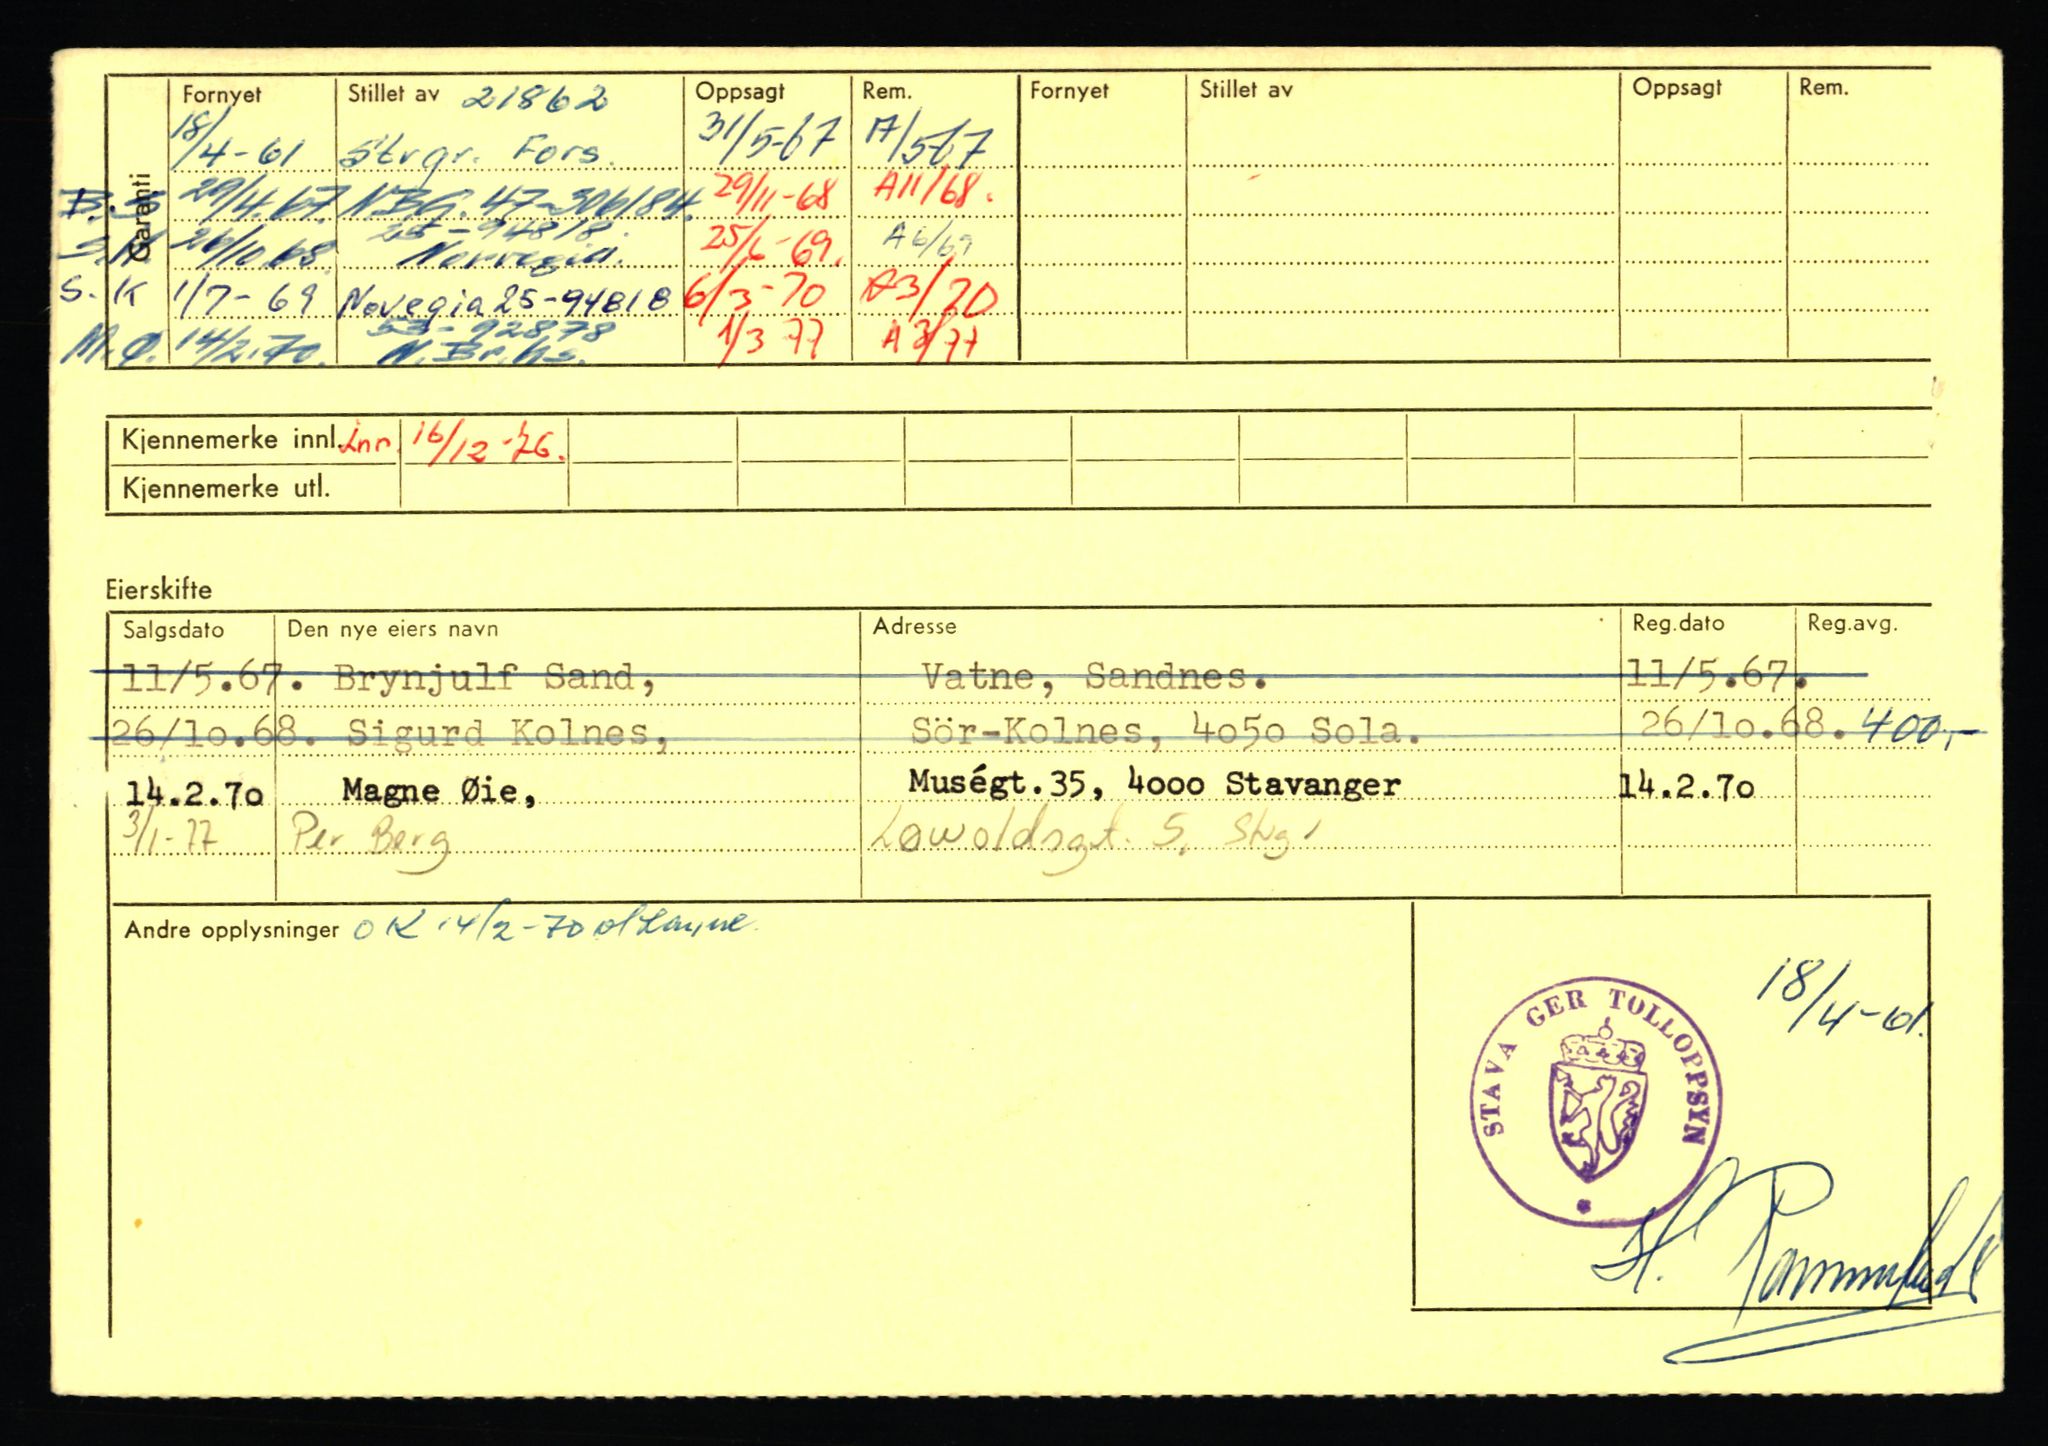 Garanti
Fornyet Stillet av 21862 Oppsagt Rem. Fornyet Stillet av Oppsagt Rem.
18/4-61 Strgr. Fors. 31/5-67 A/5-67
B.S 29/4.67. NBG. 47-306184. 29/11-68 A11/68.
25-94818.
S.K. 26/10.68. Norvegia. 25/6-69. A6/69
S.K 1/7-69 Novegia 25-94818 6/3-70 A3/70
53-92878
M.Ø. 14/2.70. N.Br.ks. 1/3 77 A3/77
Kjennemerke innl. Inn 16/12-76.
Kjennemerke utl.
Eierskifte
Salgsdato Den nye eiers navn Adresse Reg.dato Reg.avg.
11/5.67. Brynjulf Sand, Vatne, Sandnes. 11/5.67.
26/10.68. Sigurd Kolnes, Sör-Kolnes, 4050 Sola. 26/10.68. 400,-
14.2.70 Magne Øie, Muségt.35, 4000 Stavanger 14.2.70
3/1-77 Per Berg Løwoldsgt. 5, Stvg.
Andre opplysninger OK 14/2-70
18/4-61.
STAVA GER TOLLOPPSYN
H.